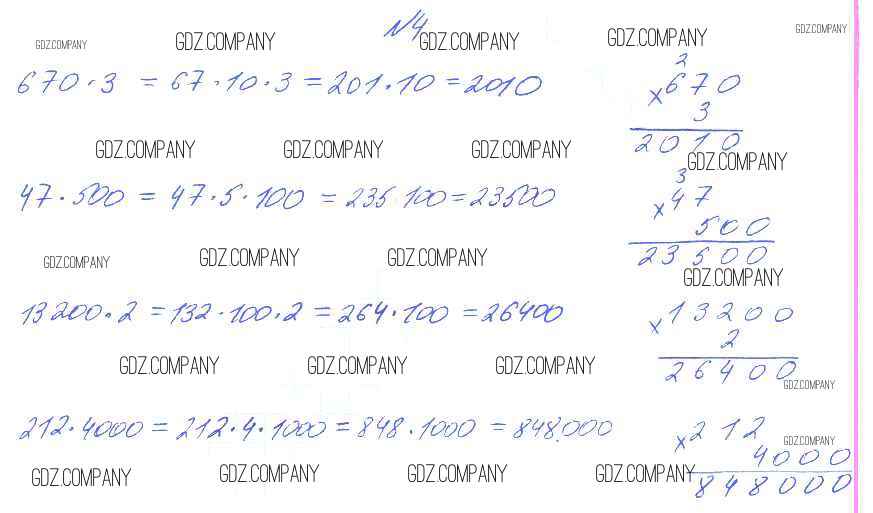 №4
GDZ.COMPANY GDZ.COMPANY GDZ.COMPANY GDZ.COMPANY GDZ.COMPANY
670 · 3 = 67 · 10 · 3 = 201 · 10 = 2010
2
× 670
3
2010
GDZ.COMPANY GDZ.COMPANY GDZ.COMPANY GDZ.COMPANY
47 · 500 = 47 · 5 · 100 = 235 100 = 23500
3
× 47
500
23500
GDZ.COMPANY GDZ.COMPANY GDZ.COMPANY GDZ.COMPANY
13200 · 2 = 132 · 100 · 2 = 264 · 100 = 26400
× 13200
2
26400
GDZ.COMPANY GDZ.COMPANY GDZ.COMPANY GDZ.COMPANY
212 · 4000 = 212 · 4 · 1000 = 848 · 1000 = 848.000
× 212
4000
848000
GDZ.COMPANY
GDZ.COMPANY GDZ.COMPANY GDZ.COMPANY GDZ.COMPANY